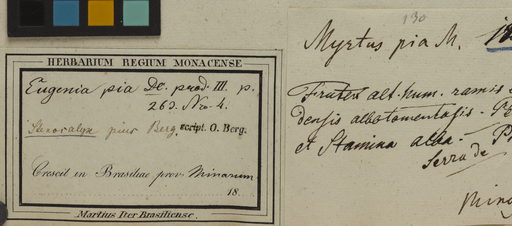 HERBARIUM REGIUM MONACENSE
Eugenia pia De. prod. III. p.
263. No. 4.
Stenocalyx pius Berg. script. O. Berg.
Crescit in Brasiliae prov. Minarum
18
Martius Iter Brasiliense.
130
Myrtus pia M.
Frutex alt. hum. ramis
densis albotomentosis.
et Stamina alba.
Serra de